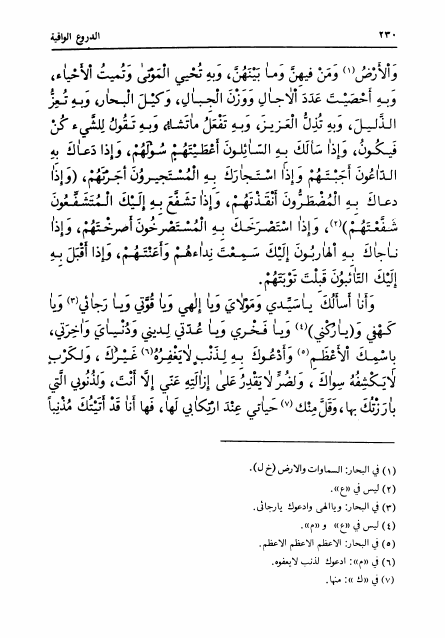 ٢٣٠ الدروع الواقية
وَالْأَرْضُ(١) وَمَنْ فيهِنَّ وَما بَيْنَهُنَّ، وَبِهِ تُحْيي الْمَوْتىٰ وَتُميتُ الْأَحْياءَ،
وَبِهِ أَحْصَيْتَ عَدَدَ الْآجالِ وَوَزْنَ الْجِبالِ، وَكَيْلَ الْبِحارِ، وَبِهِ تُعِزُّ
الذَّليلَ، وَبِهِ تُذِلُّ الْعَزيزَ، وَبِهِ تَفْعَلُ ماتَشاءُ، وَبِهِ تَقُولُ لِلشَّيْءِ كُنْ
فَيَكُونُ، وَإِذا سَأَلَكَ بِهِ السّائِلُونَ أَعْطَيْتَهُمْ سُولَهُمْ، وَإِذا دَعاكَ بِهِ
الدّاعُونَ أَجَبْتَهُمْ وَإِذا اسْتَجارَكَ بِهِ الْمُسْتَجيرُونَ أَجَرْتَهُمْ، (وَإِذا
دَعاكَ بِهِ الْمُضْطَرُّونَ أَنْقَذْتَهُمْ، وَإِذا تَشَفَّعَ بِهِ إِلَيْكَ الْمُتَشَفِّعُونَ
شَفَّعْتَهُمْ)(٢)، وَإِذا اسْتَصْرَخَكَ بِهِ الْمُسْتَصْرِخُونَ أَصْرَخْتَهُمْ، وَإِذا
ناجاكَ بِهِ الْهارِبُونَ إِلَيْكَ سَمِعْتَ نِداءَهُمْ وَأَعَنْتَهُمْ، وَإِذا أَقْبَلَ بِهِ
إِلَيْكَ التّائِبُونَ قَبِلْتَ تَوْبَتَهُمْ.
وَأَنَا أَسْأَلُكَ ياسَيِّدي وَمَوْلايَ وَيا إِلٰهي وَيا قُوَّتي وَيا رَجائي(٣) وَيا
كَهْفي وَ(يارُكْني)(٤) وَيا فَخْري وَيا عُدَّتي لِديني وَدُنْيايَ وَآخِرَتي،
بِاسْمِكَ الْأَعْظَمِ(٥) وَأَدْعُوكَ بِهِ لِذَنْبٍ لايَغْفِرُهُ(٦) غَيْرُكَ، وَلِكَرْبٍ
لايَكْشِفُهُ سِواكَ، وَلِضُرٍّ لايَقْدِرُ عَلىٰ إِزالَتِهِ عَنّي إِلّا أَنْتَ، وَلِذُنُوبيَ الَّتي
بارَزْتُكَ بِها، وَقَلَّ مِنْكَ(٧) حَيائي عِنْدَ ارْتِكابي لَها، فَها أَنَا قَدْ أَتَيْتُكَ مُذْنِباً
(١) في البحار: السماوات والارض (خ ل).
(٢) ليس في «ع».
(٣) في البحار: وياالهى وادعوك يارجائي.
(٤) ليس في «ع» و «م».
(٥) في البحار: الاعظم الاعظم الاعظم.
(٦) في «م»: ادعوك لذنب لايعفوه.
(٧) في «ك»: منها.